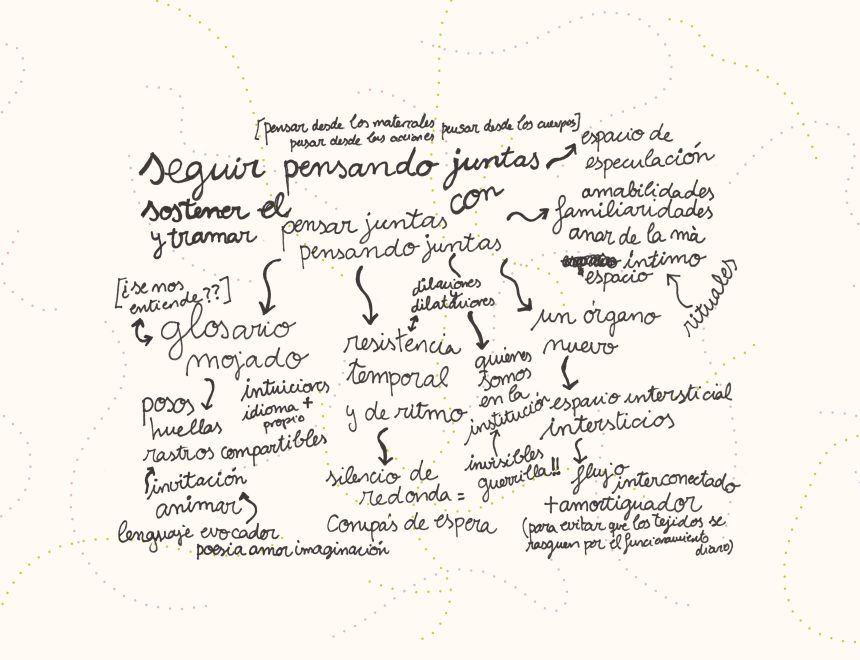 [pensar desde los materiales pensar desde los cuerpos]
pensar desde las acciones
seguir pensando juntas
espacio de
especulación
sostener el
y tramar
con
pensar juntas
pensando juntas
amabilidades
familiaridades
anar de la mà
íntimo
espacio
rituales
[¿se nos
entiende??]
glosario
mojado
posos
huellas
intuiciones
idioma +
propio
rastros compartibles
invitación
animar
lenguaje evocador
poesia amor imaginación
resistencia
temporal
y de ritmo
silencio de
redonda =
compás de espera
dilaciones
y
quiénes
somos
en la
institución
invisibles
guerrilla!!
un órgano
nuevo
espacio intersticial
intersticios
flujo
interconectado
+ amortiguador
(para evitar que los tejidos se
rasguen por el funcionamiento
diario)